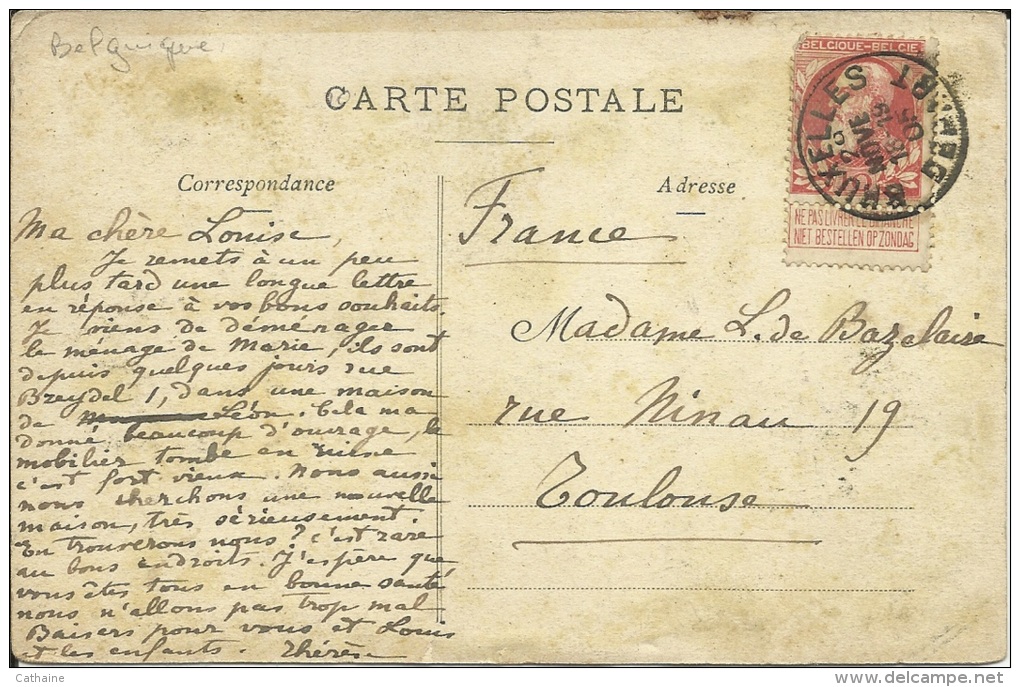 Belguique,
CARTE POSTALE
BELGIQUE-BELGIE
BRUXELLES
NOVE
NE PAS LIVRER LE DIMANCHE
NIET BESTELLEN OP ZONDAG
Correspondance
Adresse
Ma chère Louise,
Je remets à un peu
plus tard une longue lettre
en réponse à vos bons souhaits.
Je viens de démenager
le ménage de Marie, ils sont
depuis quelques jours rue
Breydel 1, dans une maison
de Léon. Cela m'a
donné beaucoup d'ouvrage, le
mobilier tombe en ruine
c'est fort vieux. Nous aussi
nous cherchons une nouvelle
maison, très sérieusement.
En trouverons nous? c'est rare
au bons endroits. J'espère que
vous êtes tous en bonne santé
nous n'allons pas trop mal
Baisers pour vous et Louis
et les enfants. Thérèse
France
Madame L. de Bazelaire
rue Ninau 19
Toulouse
Cathaine
delcampe.net